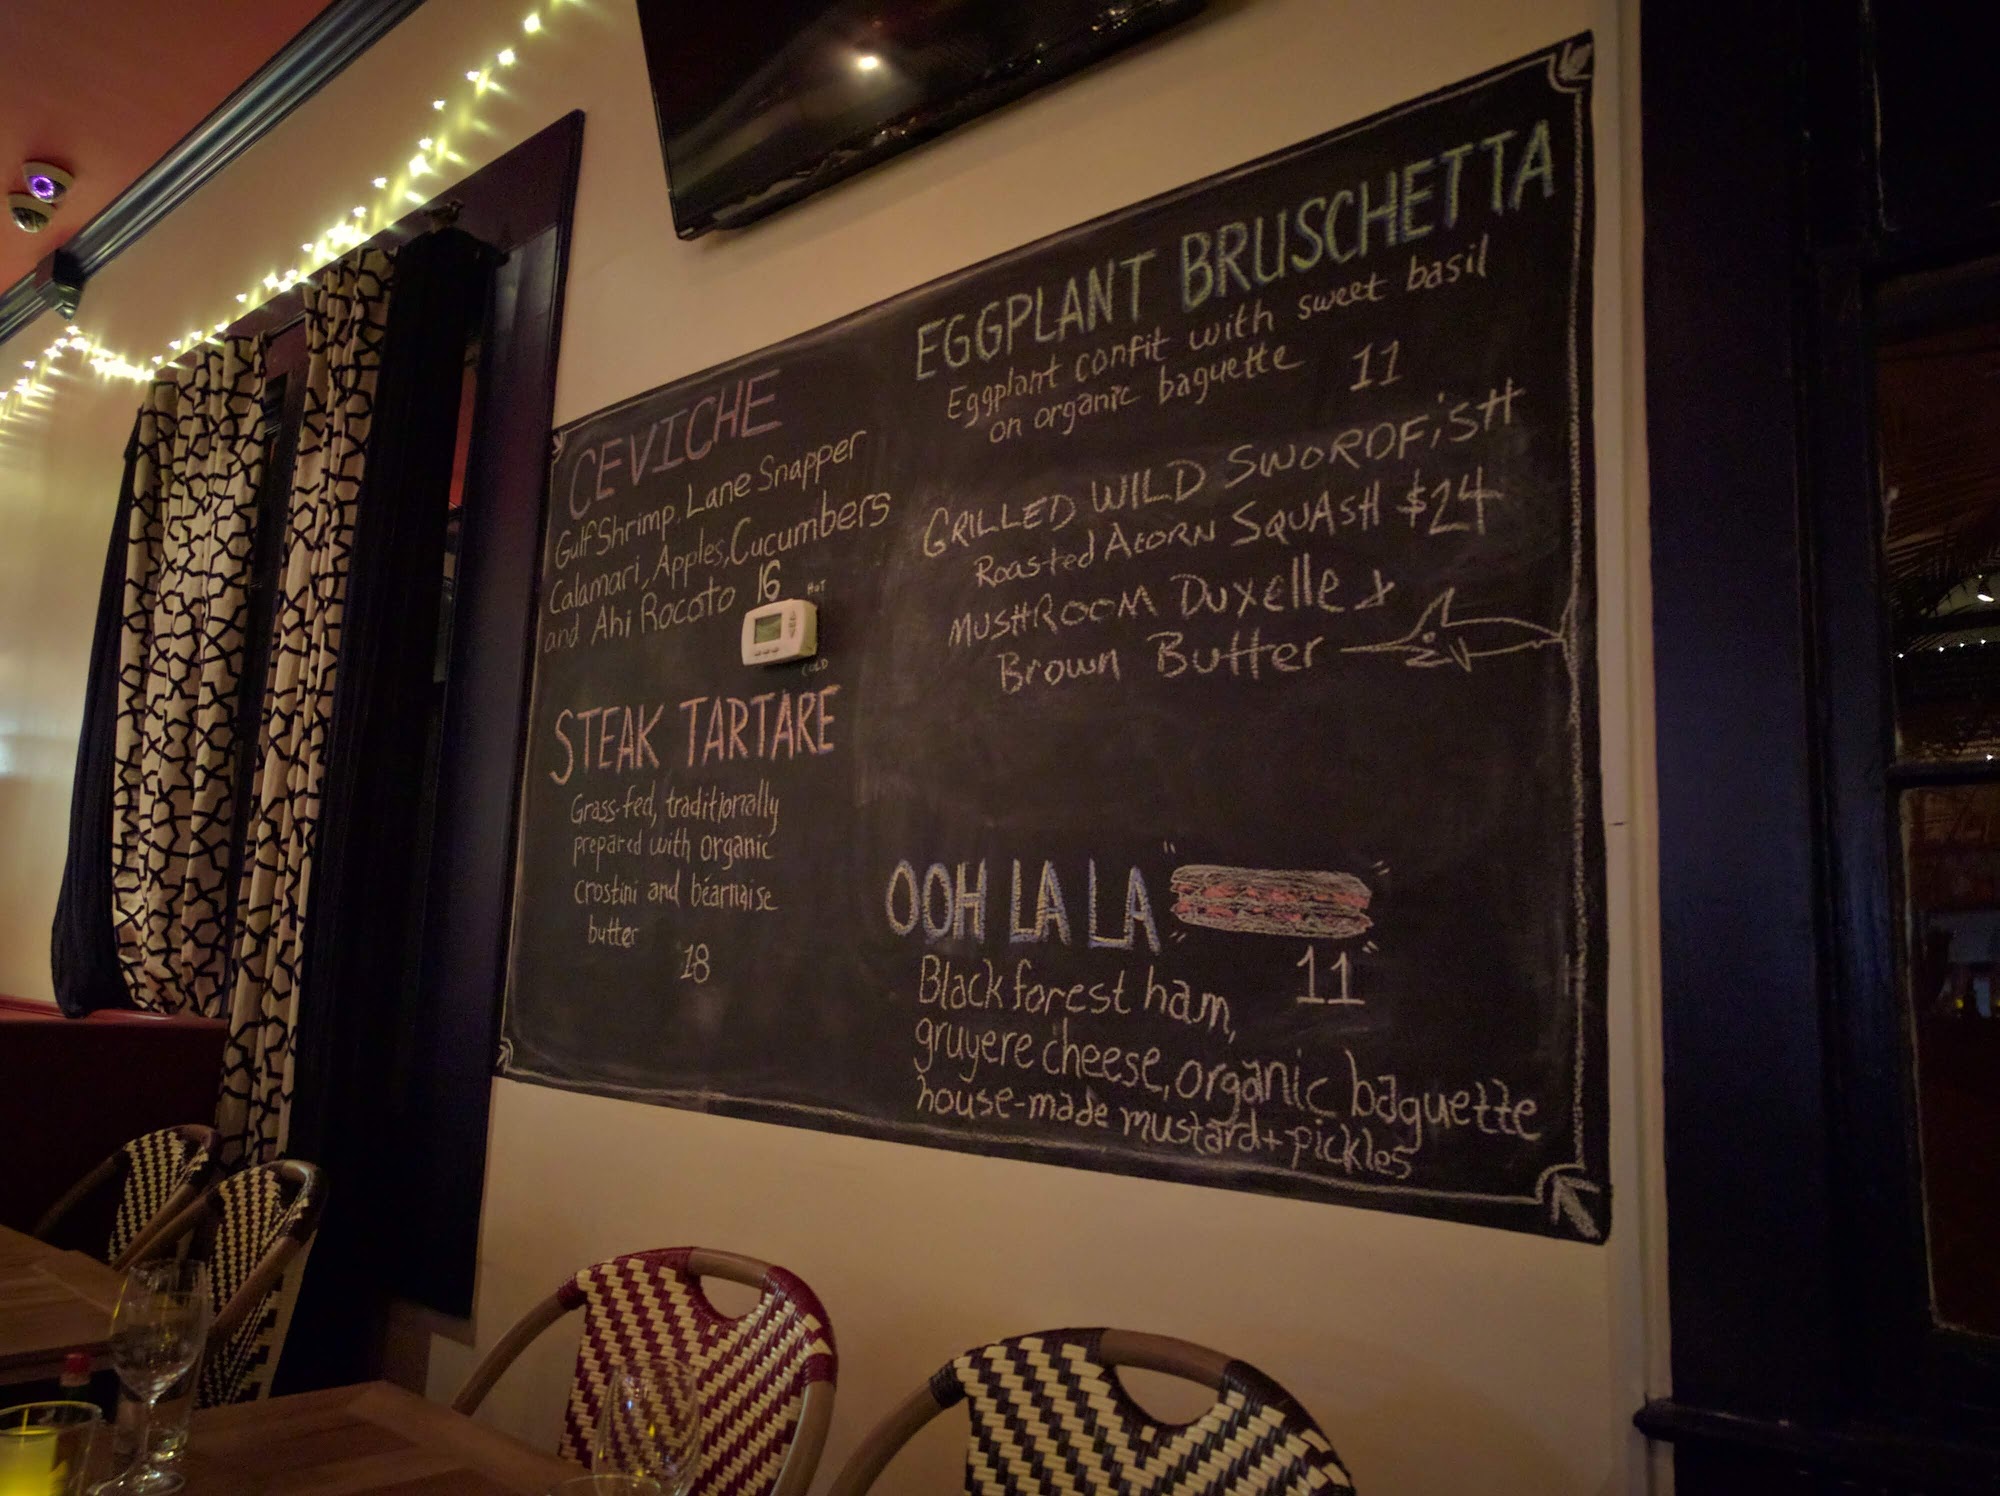 CEVICHE
Gulf Shrimp, Lane Snapper
Calamari, Apples, Cucumbers
and Ahi Rocoto 16
HOT
COLD
STEAK TARTARE
Grass-fed, traditionally
prepared with organic
crostini and béarnaise
butter
18
EGGPLANT BRUSCHETTA
Eggplant confit with sweet basil
on organic baguette 11
GRILLED WILD SWORDFiSH
Roasted ACORN SQUASH $24
MUSHROOM Duxelle &
Brown Butter
OOH LA LA
11
Black forest ham,
gruyere cheese, organic baguette
house-made mustard + pickles